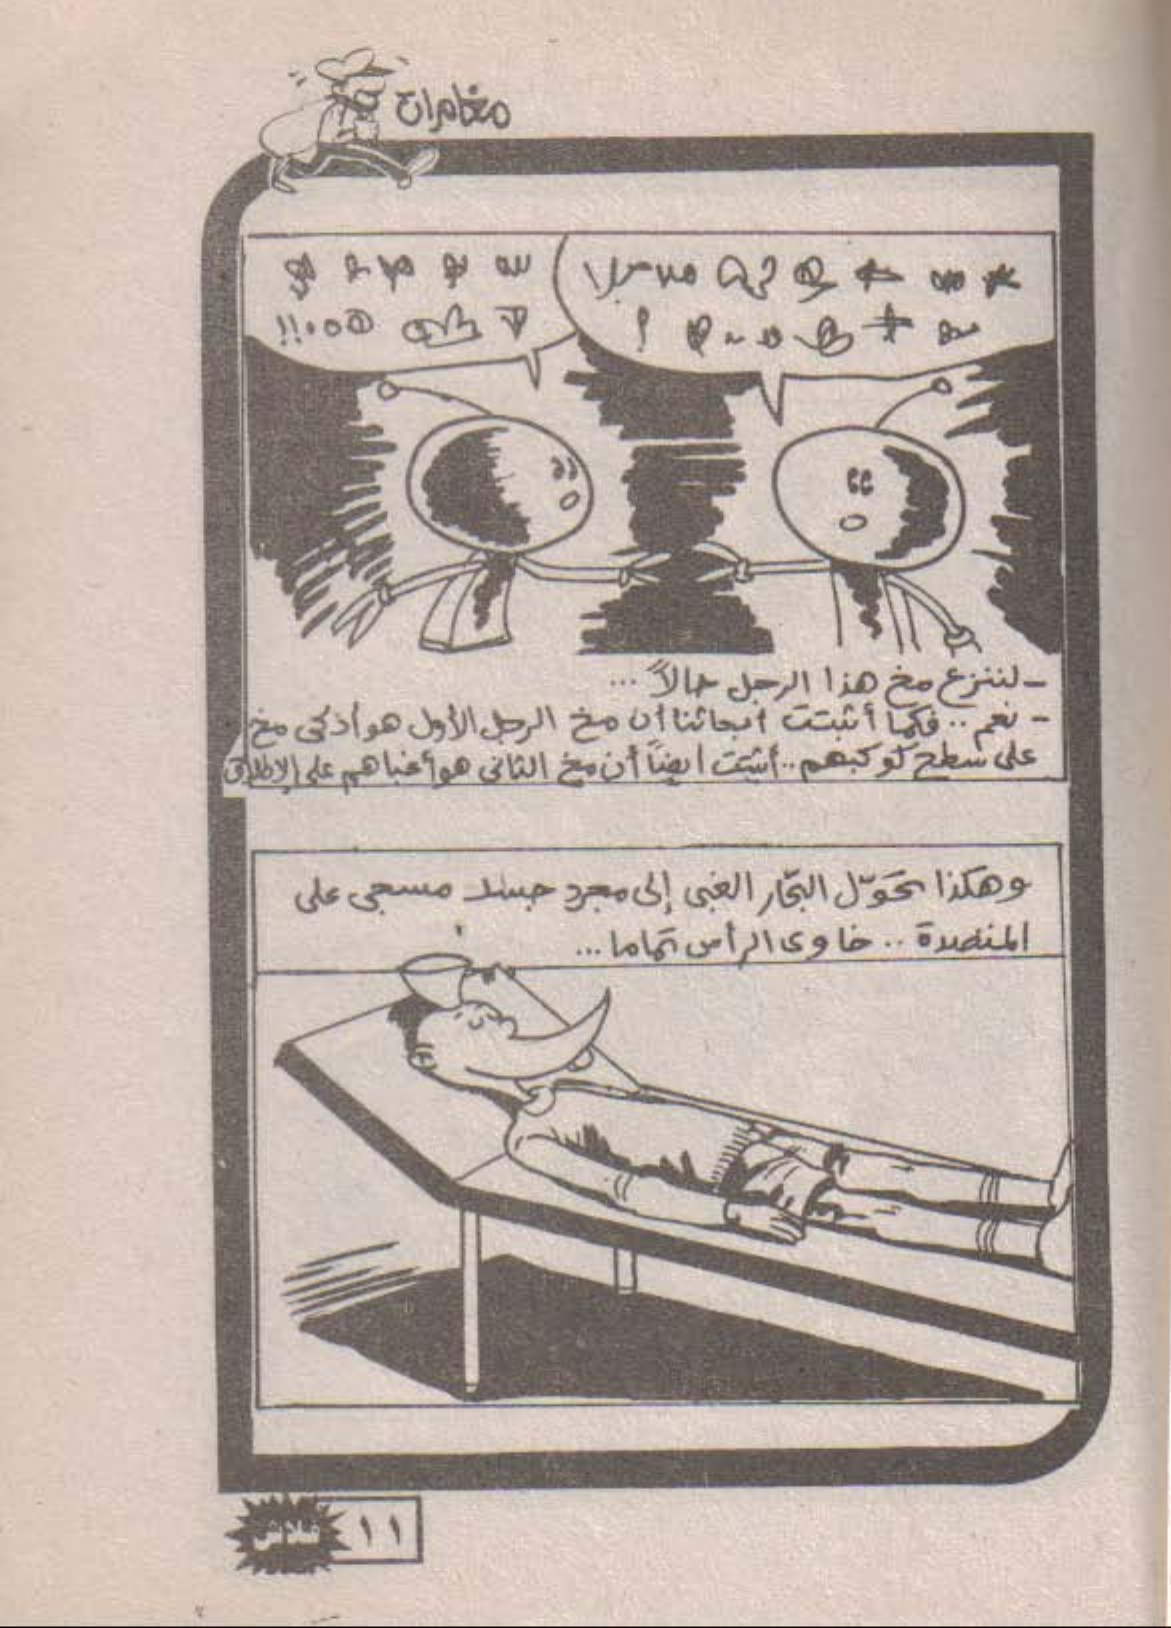 مغامرات
- لننزع مخ هذا الرجل حالاً ...
- نعم .. فكما أثبتت أبحاثنا أن مخ الرجل الأول هو أذكى مخ
على سطح كوكبهم .. أثبتت أيضاً أن مخ الثانى هو أغباهم على الإطلاق
وهكذا تحَوّل البحّار الغبى إلى مجرد جسد مسجى على
المنضدة .. خاوى الرأس تماما ...
١١
فلاش